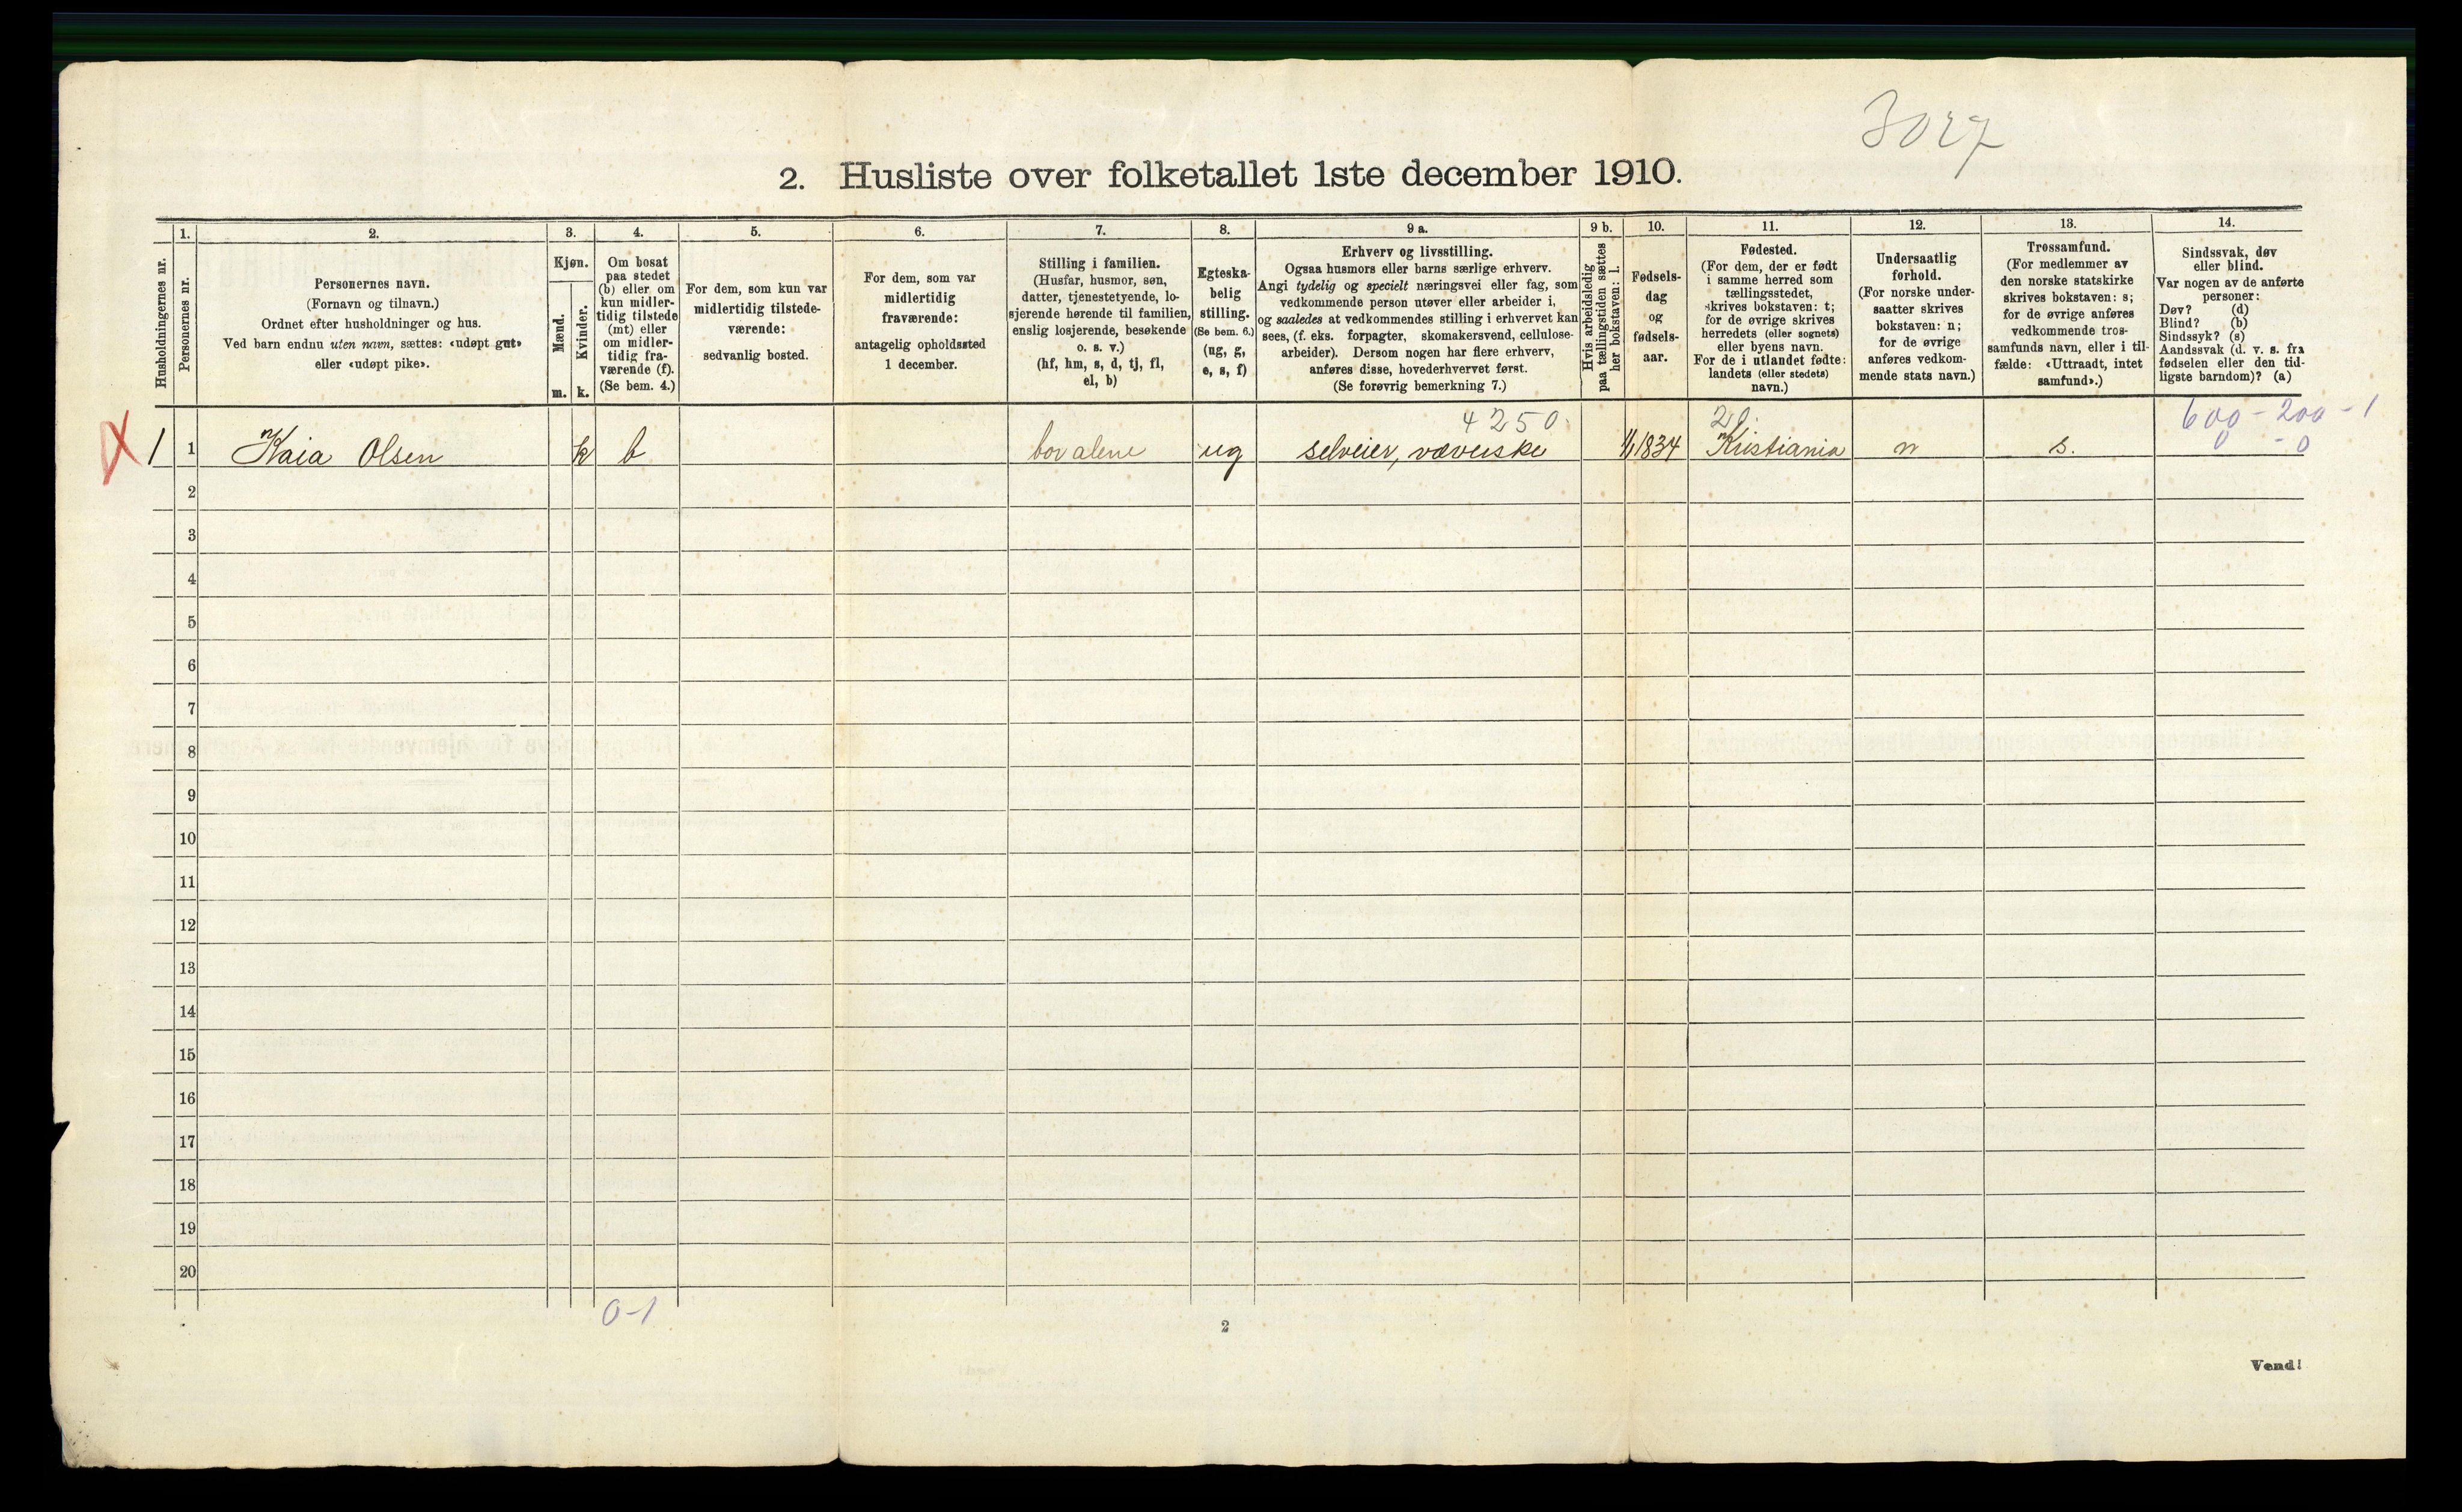 3027
2. Husliste over folketallet 1ste december 1910.
Husholdningernes nr.
1.
Personernes nr.
2.
Personernes navn.
(Fornavn og tilnavn.)
Ordnet efter husholdninger og hus.
Ved barn endnu uten navn, sættes: «udøpt gut»
eller «udøpt pike».
3.
Kjøn.
Mænd.
Kvinder.
m. k.
4.
Om bosat
paa stedet
(b) eller om
kun midler-
tidig tilstede
(mt) eller
om midler-
tidig fra-
værende (f).
(Se bem. 4.)
5.
For dem, som kun var
midlertidig tilstede-
værende:
sedvanlig bosted.
6.
For dem, som var
midlertidig
fraværende:
antagelig opholdssted
1 december.
7.
Stilling i familien.
(Husfar, husmor, søn,
datter, tjenestetyende, lo-
sjerende hørende til familien,
enslig losjerende, besøkende
o. s. v.)
(hf, hm, s, d, tj, fl,
el, b)
8.
Egteska-
belig
stilling.
(Se bem. 6.)
(ug, g,
e, s, f)
9 a.
Erhverv og livsstilling.
Ogsaa husmors eller barns særlige erhverv.
Angi tydelig og specielt næringsvei eller fag, som
vedkommende person utøver eller arbeider i,
og saaledes at vedkommendes stilling i erhvervet kan
sees, (f. eks. forpagter, skomakersvend, cellulose-
arbeider). Dersom nogen har flere erhverv,
anføres disse, hovederhvervet først.
(Se forøvrig bemerkning 7.)
9 b.
Hvis arbeidsledig
paa tællingstiden sættes
her bokstaven: l.
10.
Fødsels-
dag
og
fødsels-
aar.
11.
Fødested.
(For dem, der er født
i samme herred som
tællingsstedet,
skrives bokstaven: t;
for de øvrige skrives
herredets (eller sognets)
eller byens navn.
For de i utlandet fødte:
landets (eller stedets)
navn.)
12.
Undersaatlig
forhold.
(For norske under-
saatter skrives
bokstaven: n;
for de øvrige
anføres vedkom-
mende stats navn.)
13.
Trossamfund.
(For medlemmer av
den norske statskirke
skrives bokstaven: s;
for de øvrige anføres
vedkommende tros-
samfunds navn, eller i til-
fælde: «Uttraadt, intet
samfund».)
14.
Sindssvak, døv
eller blind.
Var nogen av de anførte
personer:
Døv? (d)
Blind? (b)
Sindssyk? (s)
Aandssvak (d. v. s. fra
fødselen eller den tid-
ligste barndom)? (a)
4250 20. 600-200-1
0 - 0
X 1 1 Kaia Olsen k b bor alene ug selveier, væverske 1/1 1834 Kristiania n s.
2
3
4
5
6
7
8
9
10
11
12
13
14
15
16
17
18
19
20
0-1
2
Vend!